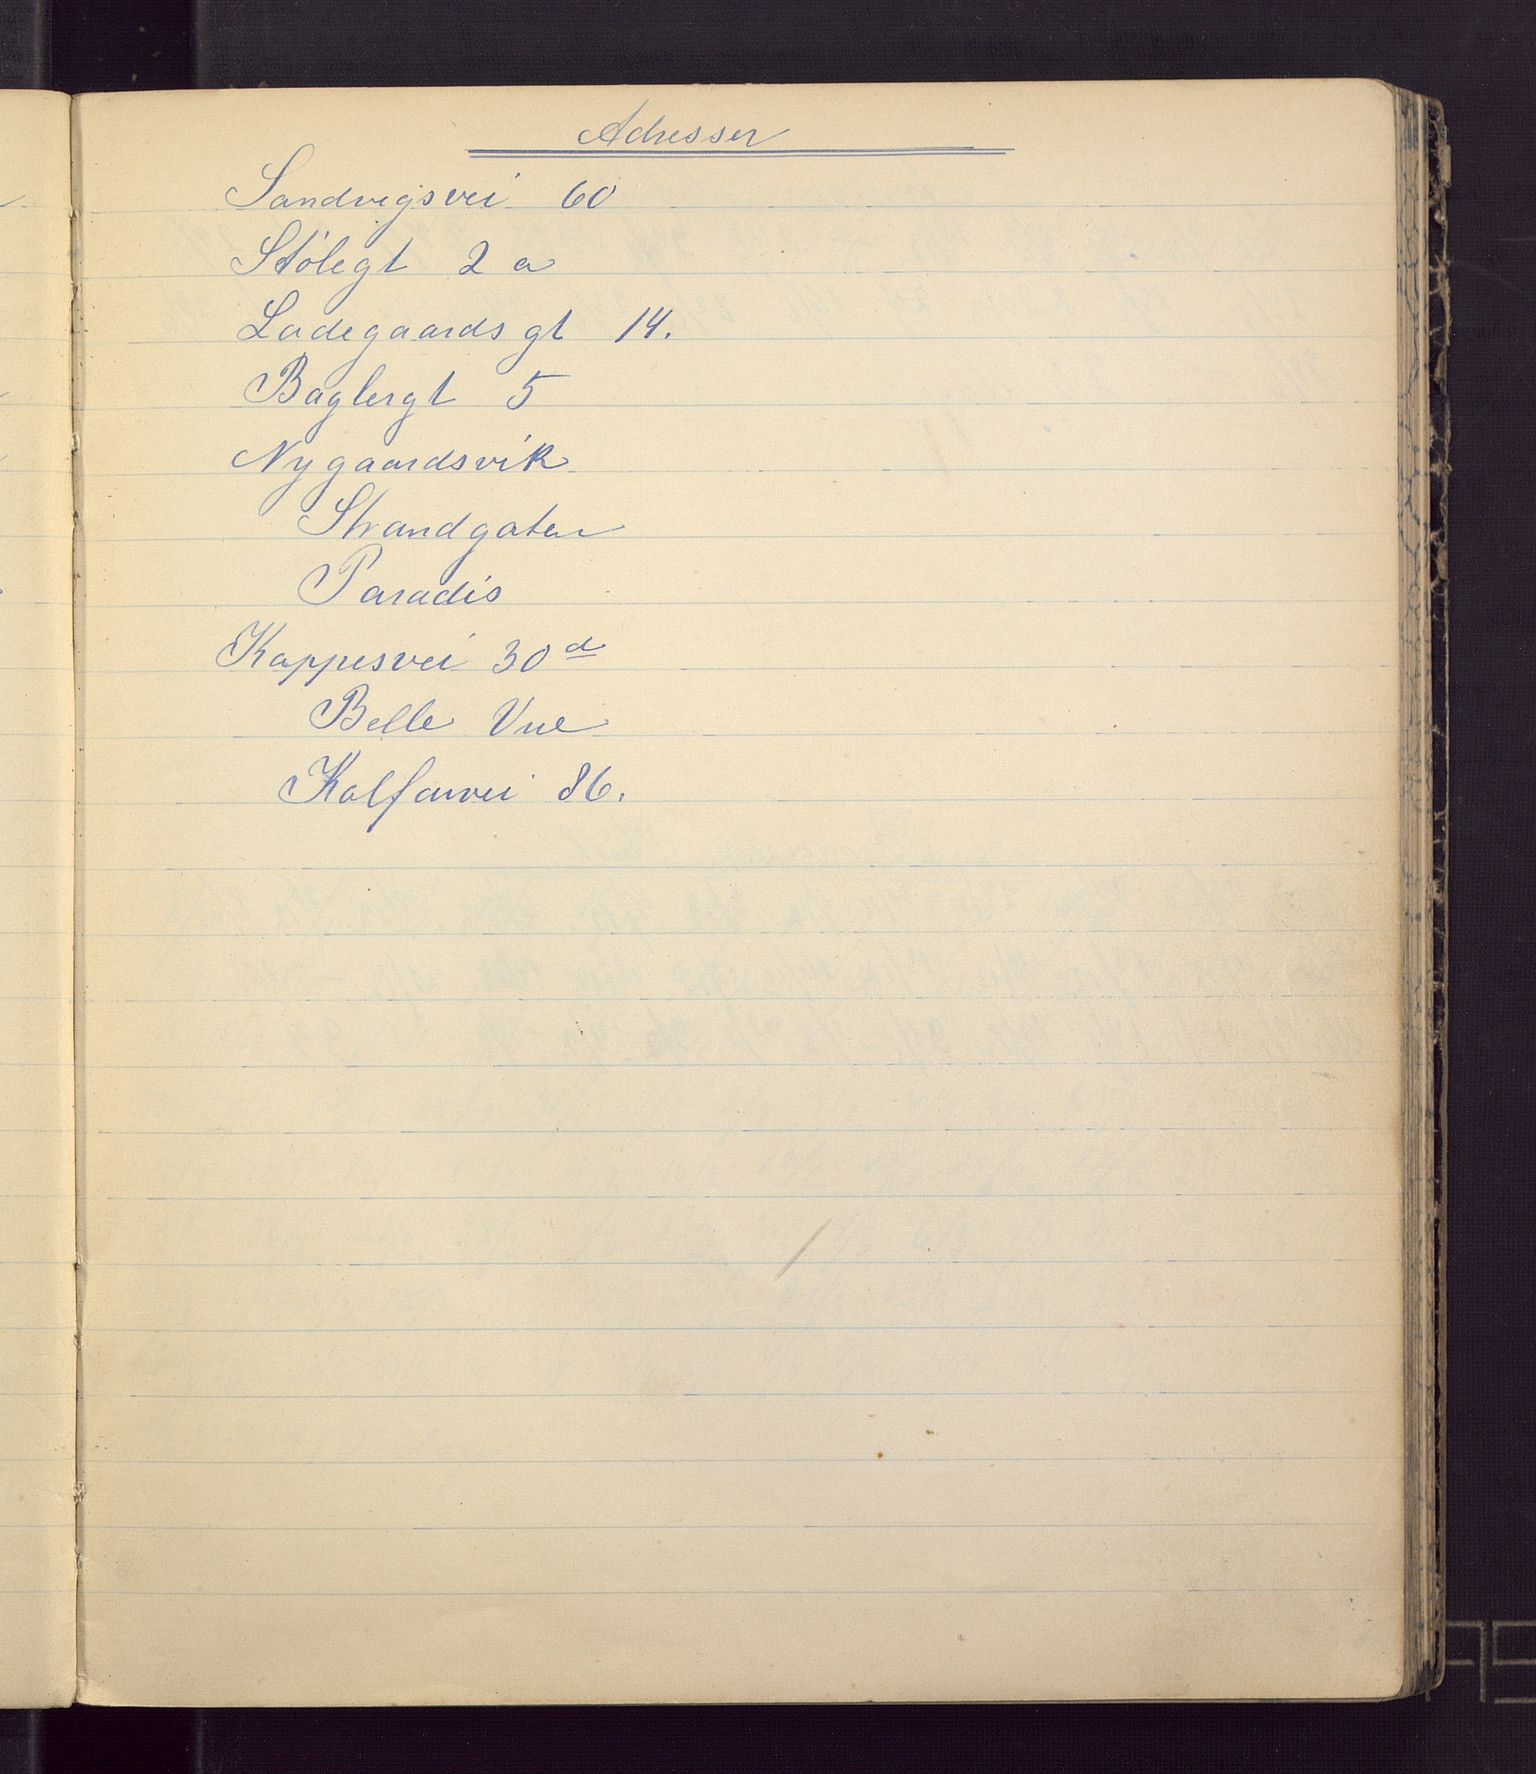 Adresser
Sandvigsvei 60
Stølegt 2 a
Ladegaardsgt 14.
Baglergt 5
Nygaardsvik
Strandgaten
Paradis
Kappesvei 30 d
Belle Vue
Kalfarvei 86.